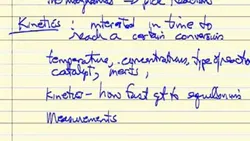 → pick reaction
Kinetics : interested in time to
reach a certain conversion
temperature, concentrations, type of reactor
catalyst, inerts,
Kinetics - how fast get to equilibrium
Measurements